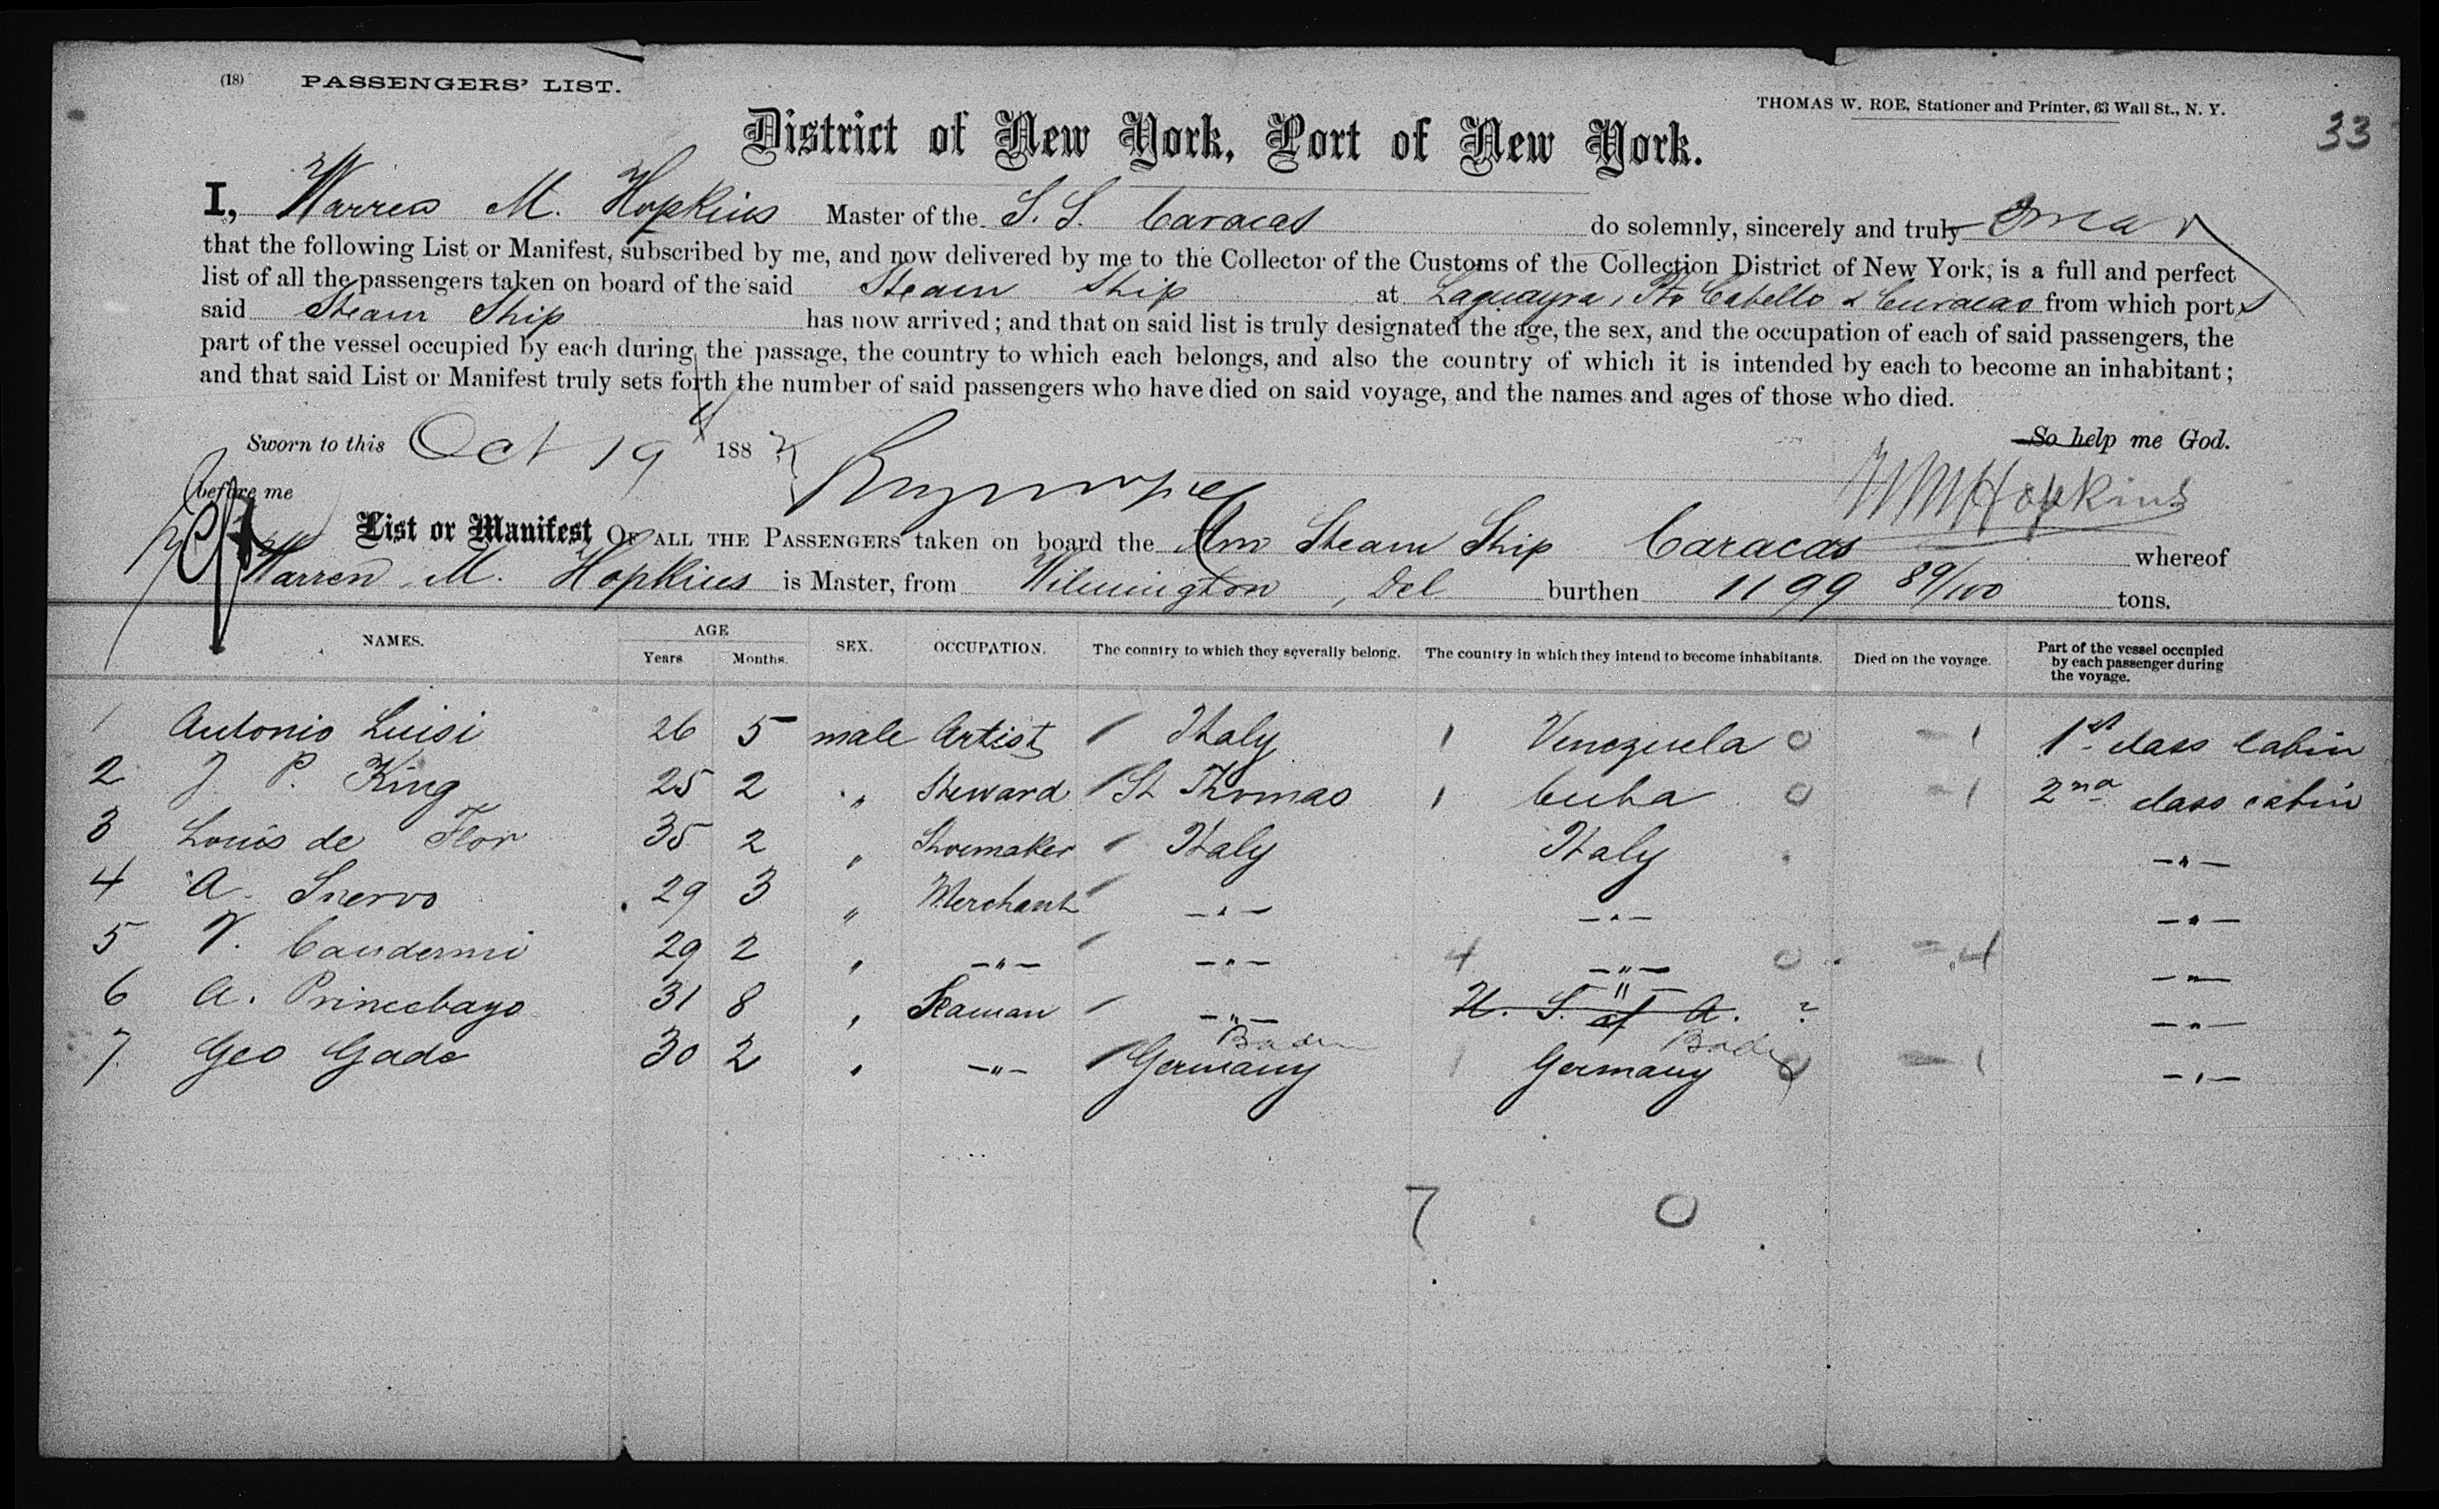 (18) PASSENGERS' LIST.
THOMAS W. ROE, Stationer and Printer, 63 Wall St., N. Y.
33
District of New York, Port of New York.
I, Warren M. Hopkins Master of the S. S. Caracas do solemnly, sincerely and truly
that the following List or Manifest, subscribed by me, and now delivered by me to the Collector of the Customs of the Collection District of New York, is a full and perfect
list of all the passengers taken on board of the said Steam Ship at Laguayra, Pto Cabello & Curacao from which ports
said Steam Ship has now arrived; and that on said list is truly designated the age, the sex, and the occupation of each of said passengers, the
part of the vessel occupied by each during the passage, the country to which each belongs, and also the country of which it is intended by each to become an inhabitant;
and that said List or Manifest truly sets forth the number of said passengers who have died on said voyage, and the names and ages of those who died.
Sworn to this Oct 19 188 So help me God.
before me WM Hopkins
List or Manifest OF ALL THE PASSENGERS taken on board the Am Steam Ship Caracas whereof
Warren M. Hopkins is Master, from Wilmington, Del burthen 1199 89/100 tons.
NAMES. AGE Years Months. SEX. OCCUPATION. The country to which they severally belong. The country in which they intend to become inhabitants. Died on the voyage. Part of the vessel occupied by each passenger during the voyage.
1 Antonio Luisi 26 5 male Artist / Italy 1 Venezuela 0 - 1 1st class Cabin
2 J. P. King 25 2 " Steward / St Thomas 1 Cuba 0 - 1 2nd class cabin
3 Louis de Flor 35 2 " Shoemaker / Italy Italy -"-
4 A. Snervo 29 3 " Merchant / -"- -"- -"-
5 V. Caudermi 29 2 " -"- / -"- 4 -"- 0 = 4 -"-
6 A. Princebayo 31 8 " Seaman / -"- -"- U. S. of A. ? -"-
Baden Baden
7. Geo Gade 30 2 " -"- / Germany 1 Germany 0 - 1 -"-
7 0